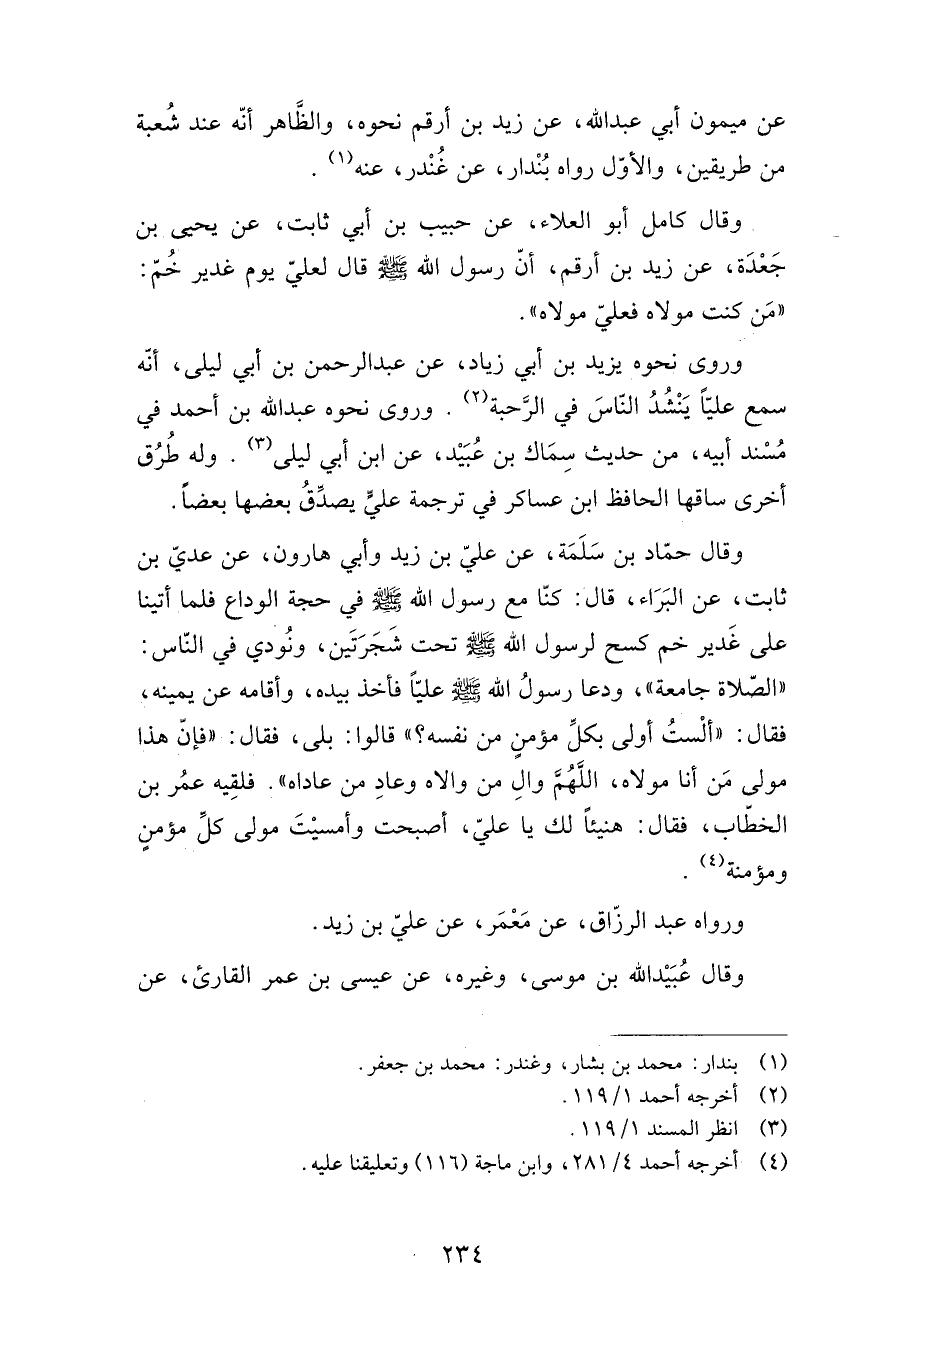 عن ميمون أبي عبدالله، عن زيد بن أرقم نحوه، والظَّاهر أنّه عند شُعبة
من طريقين، والأوّل رواه بُنْدار، عن غُنْدر، عنه(١) .
وقال كامل أبو العلاء، عن حبيب بن أبي ثابت، عن يحيى بن
جَعْدَة، عن زيد بن أرقم، أنّ رسول الله ﷺ قال لعليّ يوم غدير خُمّ:
«مَن كنت مولاه فعليّ مولاه».
وروى نحوه يزيد بن أبي زياد، عن عبدالرحمن بن أبي ليلى، أنّه
سمع عليّاً يَنْشُدُ النّاسَ في الرَّحبة(٢) . وروى نحوه عبدالله بن أحمد في
مُسْند أبيه، من حديث سِمَاك بن عُبَيْد، عن ابن أبي ليلى(٣) . وله طُرُق
أخرى ساقها الحافظ ابن عساكر في ترجمة عليٍّ يصدِّقُ بعضها بعضاً.
وقال حمّاد بن سَلَمَة، عن عليّ بن زيد وأبي هارون، عن عديّ بن
ثابت، عن البَرَاء، قال: كنّا مع رسول الله ﷺ في حجة الوداع فلما أتينا
على غَدير خم كسح لرسول الله ﷺ تحت شَجَرَتَين، ونُودي في النّاس:
«الصّلاة جامعة»، ودعا رسولُ الله ﷺ عليّاً فأخذ بيده، وأقامه عن يمينه،
فقال: «ألْستُ أولى بكلِّ مؤمنٍ من نفسه؟» قالوا: بلى، فقال: «فإنّ هذا
مولى مَن أنا مولاه، اللَّهُمَّ والِ من والاه وعادِ من عاداه». فلقِيه عمُر بن
الخطّاب، فقال: هنيئاً لك يا عليّ، أصبحت وأمسيْتَ مولى كلِّ مؤمنٍ
ومؤمنة(٤) .
ورواه عبد الرزّاق، عن مَعْمَر، عن عليّ بن زيد.
وقال عُبَيْدالله بن موسى، وغيره، عن عيسى بن عمر القارئ، عن
(١) بندار: محمد بن بشار، وغندر: محمد بن جعفر.
(٢) أخرجه أحمد ١/ ١١٩ .
(٣) انظر المسند ١/ ١١٩ .
(٤) أخرجه أحمد ٤/ ٢٨١، وابن ماجة (١١٦) وتعليقنا عليه.
٢٣٤